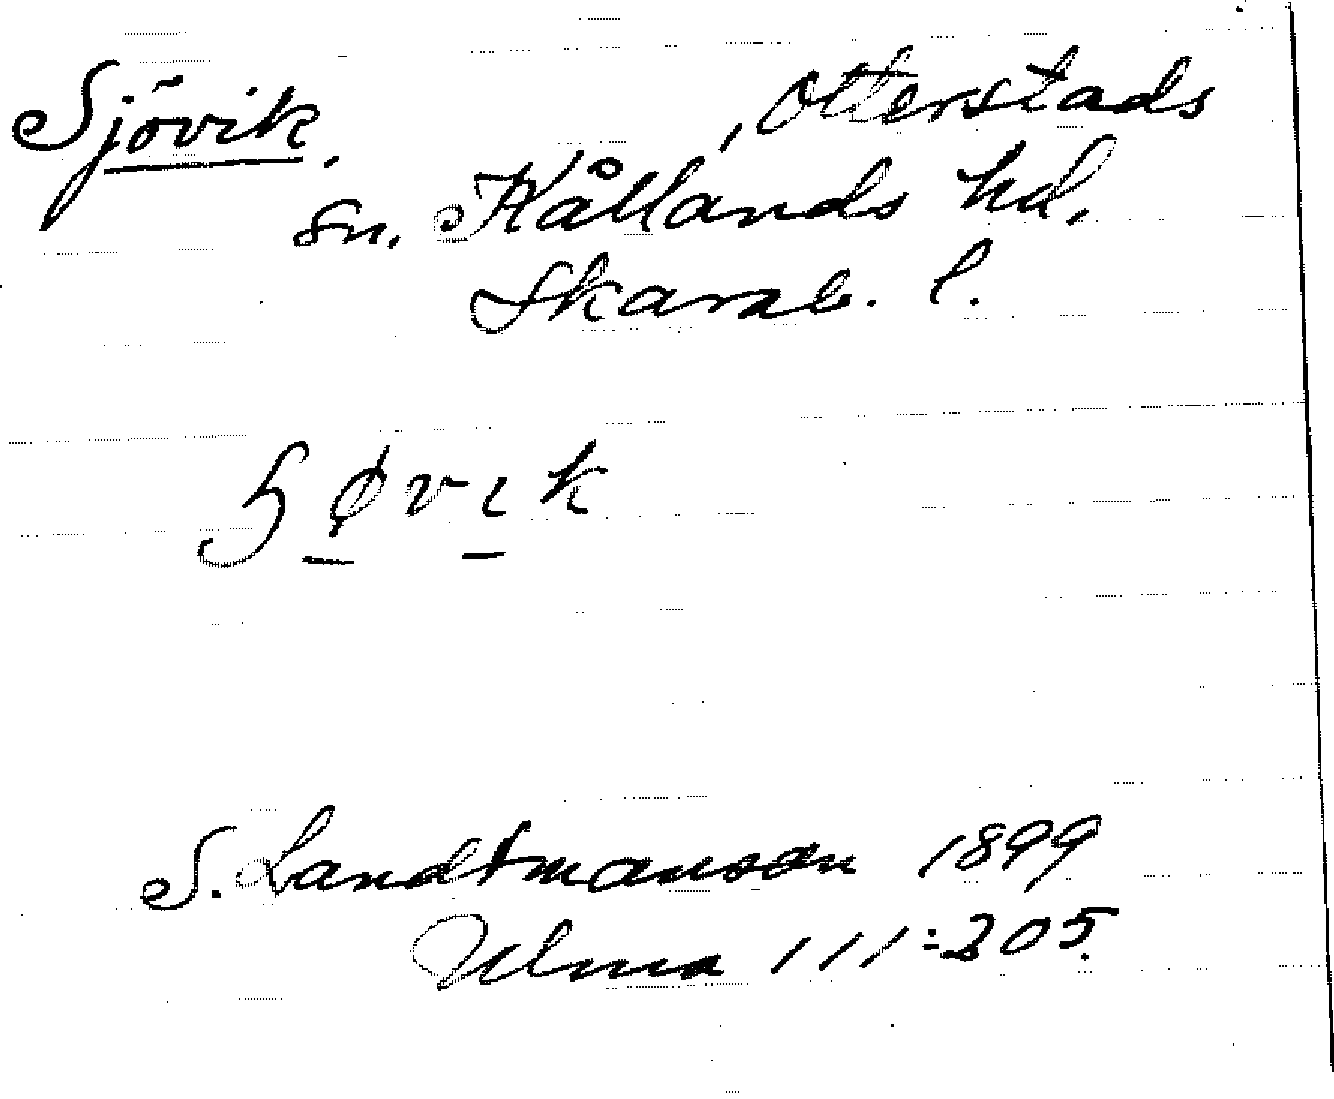 Sjövik, Otterstads
sn. Kållands hd,
Skarab. l.
S. Landtmanson 1899
Ulma 111:305.